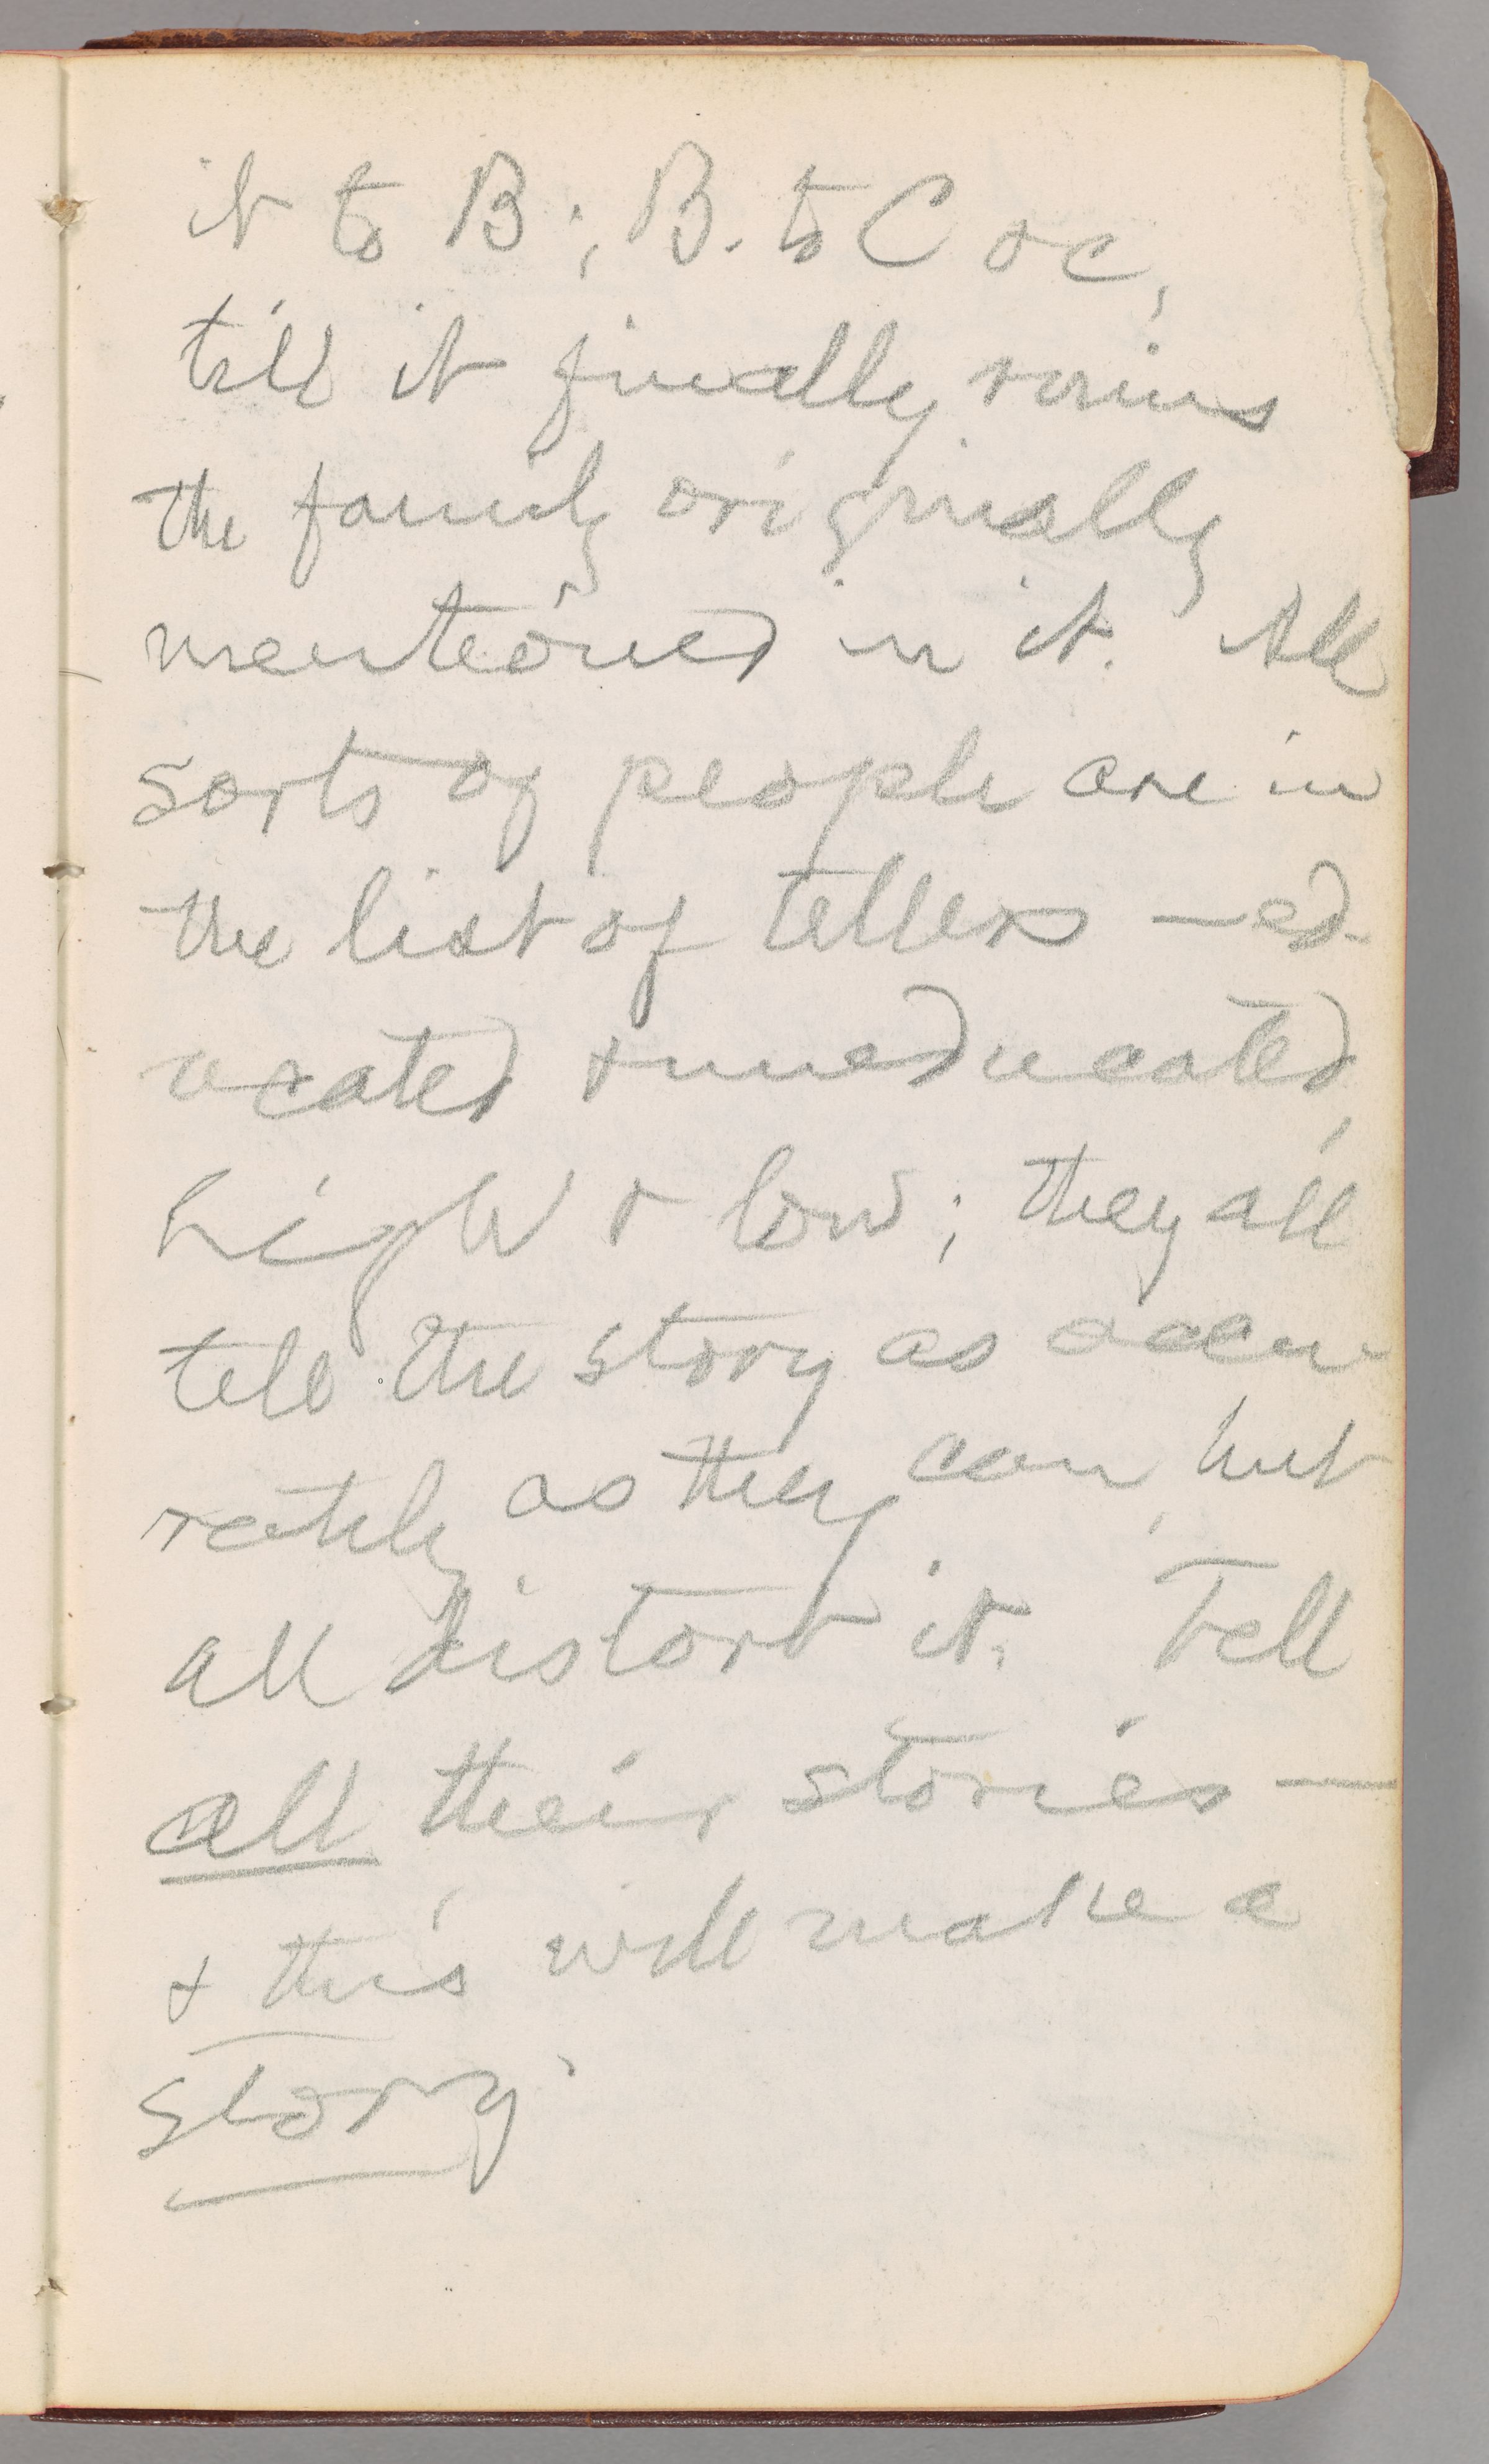 it to B; B. to C &c,
till it finally ruins
the family originally
mentioned in it. All
sorts of people are in
the list of tellers — ed-
ucated & uneducated,
high & low; they all
tell the story as accu
rately as they can, but
all distort it. Tell
all their stories —
& this will make a
story.